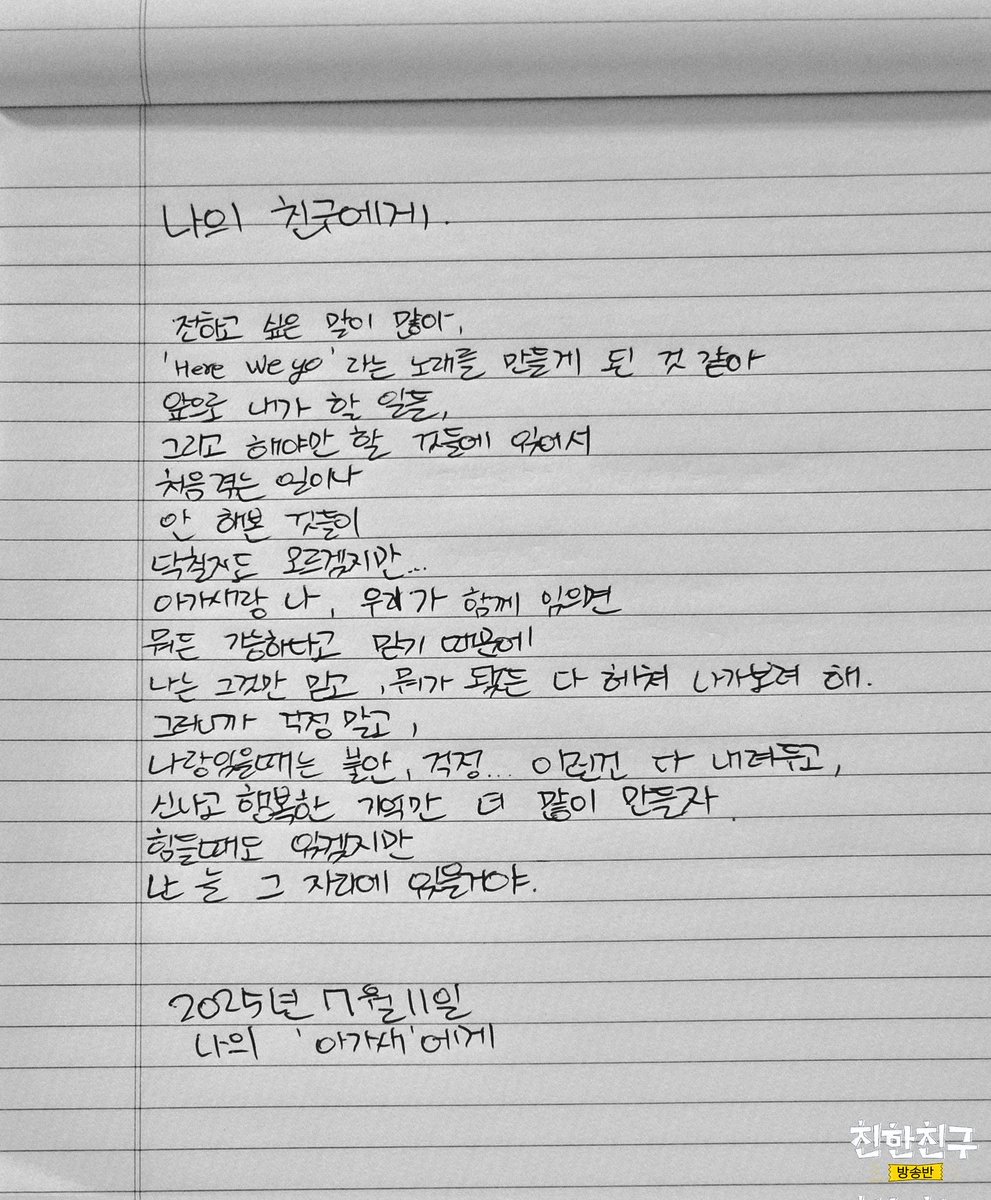 나의 친구에게.
전하고 싶은 말이 많아,
'Here we go' 라는 노래를 만들게 된 것 같아
앞으로 내가 할 일들,
그리고 해야만 할 것들에 있어서
처음겪는 일이나
안 해본 것들이
닥칠지도 모르겠지만...
아가새랑 나, 우리가 함께 있으면
뭐든 가능하다고 믿기 때문에
나는 그것만 믿고, 뭐가 됐든 다 헤쳐 나가보려 해.
그러니까 걱정 말고,
나랑있을때는 불안, 걱정... 이런건 다 내려두고,
신나고 행복한 기억만 더 많이 만들자.
힘들때도 있겠지만
난 늘 그 자리에 있을거야.
2025년 7월 11일
나의 '아가새'에게
친한친구
방송반